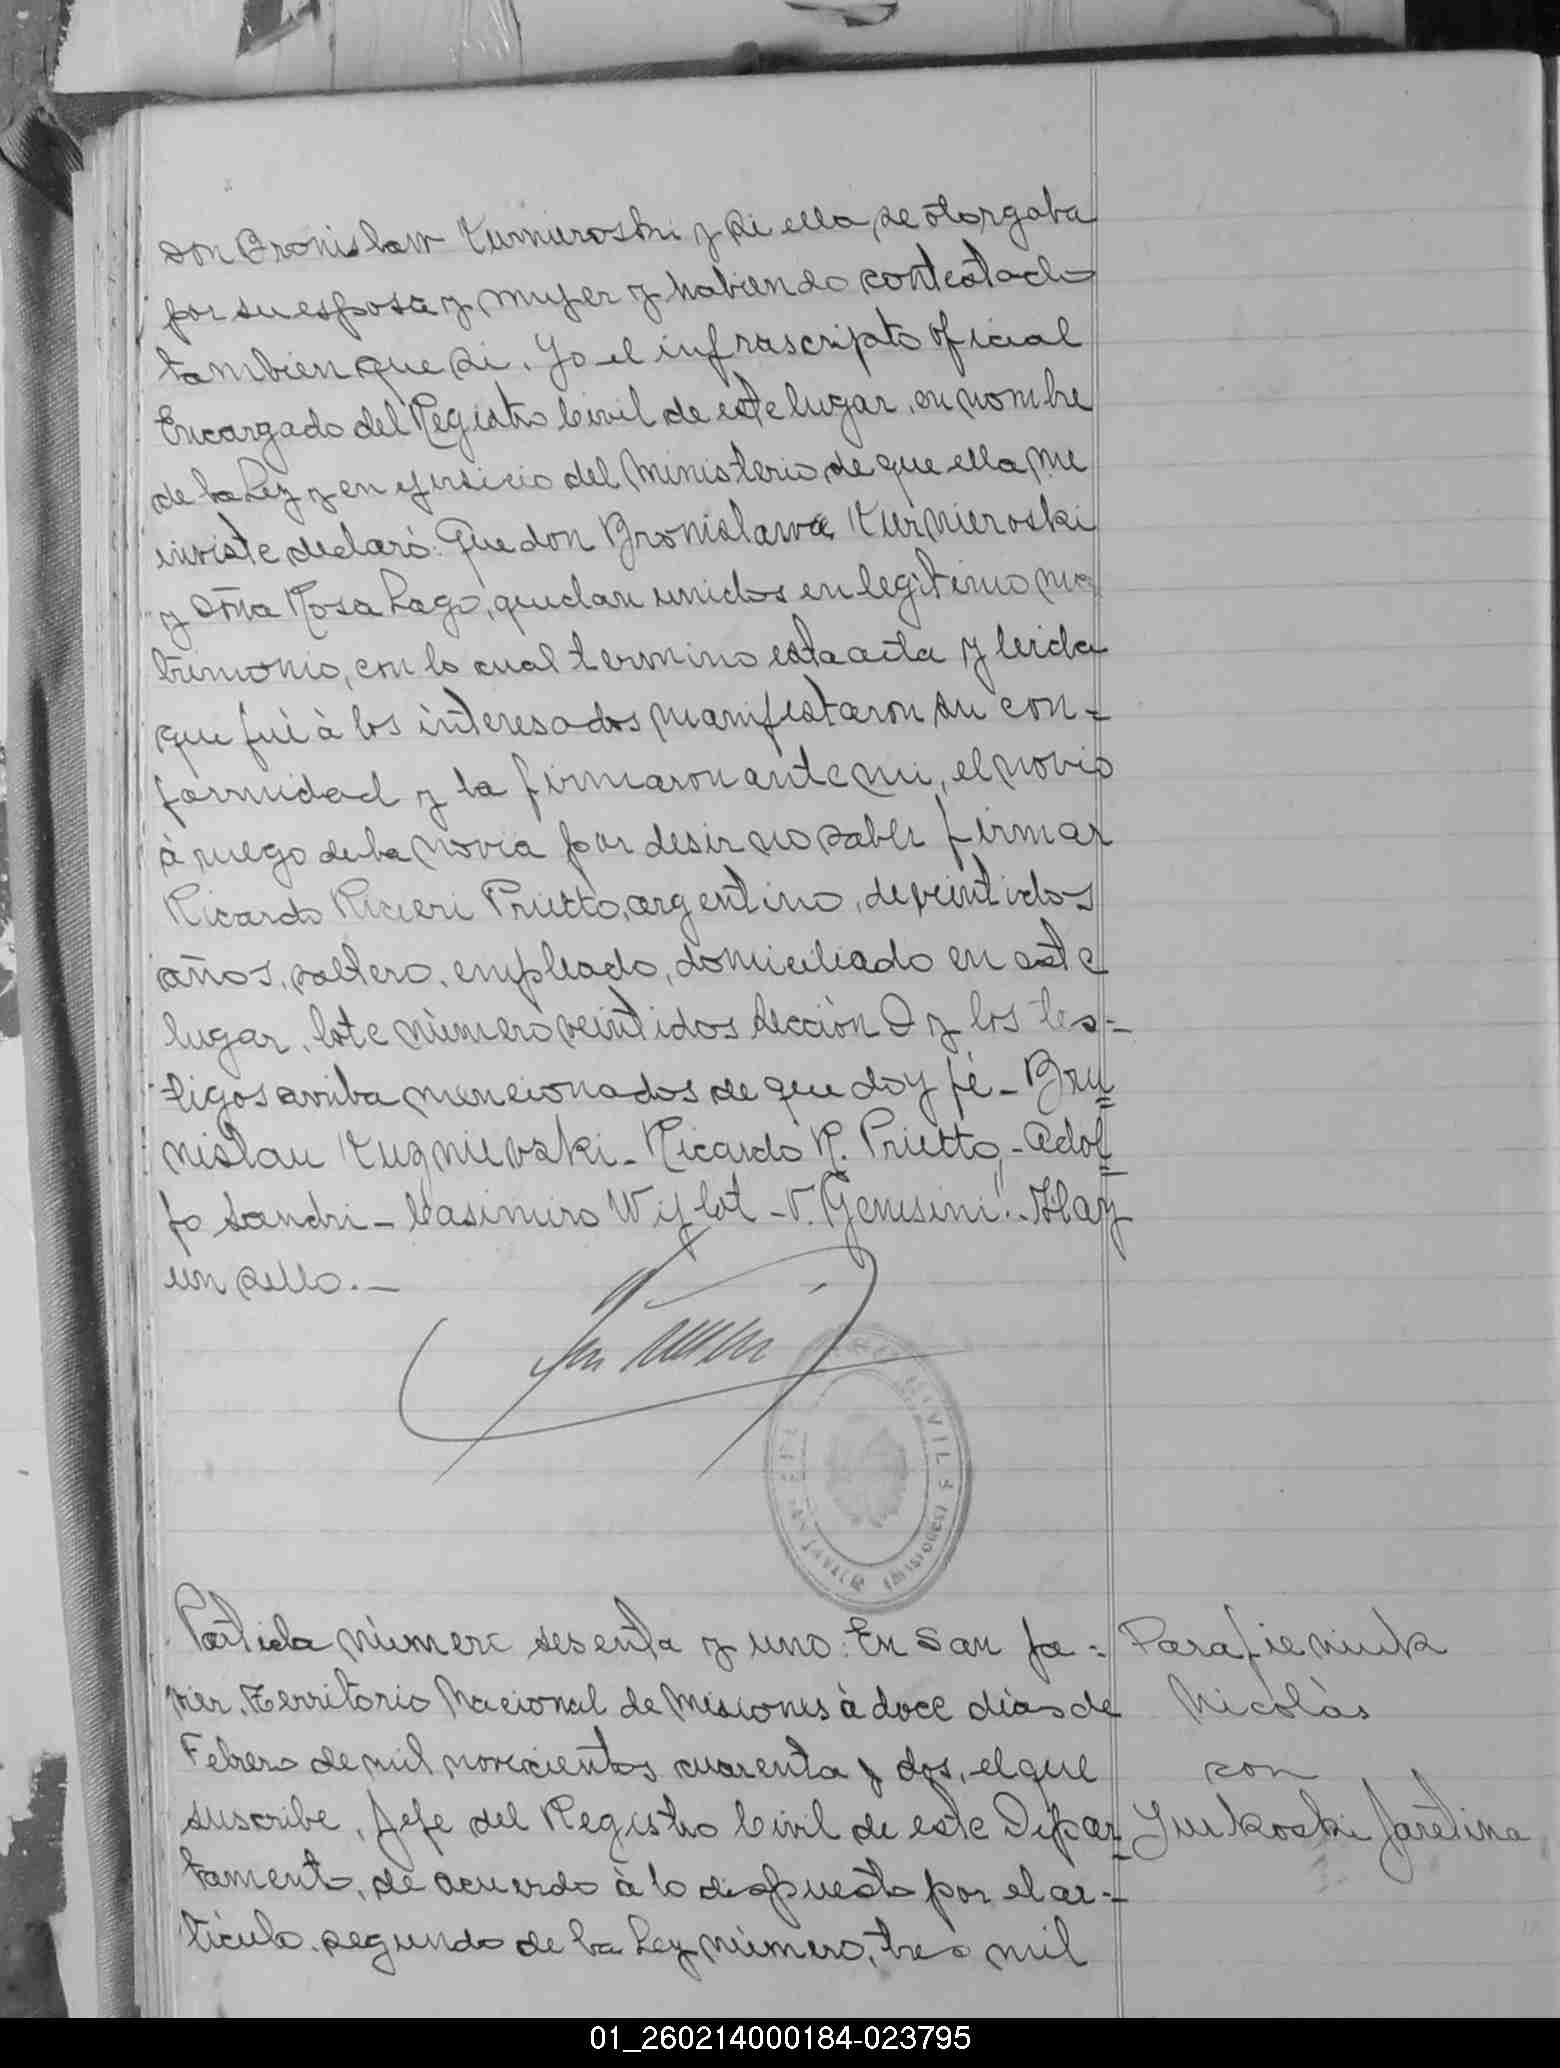 don Bronislaw Kurnieroski y si ella se otorgaba
por su esposa y mujer y habiendo contestado
tambien que si. Yo el infrascripto oficial
Encargado del Registro Civil de este lugar, en nombre
de la Ley y en ejersicio del Ministerio de que ella me
inviste declaró: Que don Bronislawa Kurnieroski
y doña Rosa Lago, quedan unidos en legitimo ma
trimonio, con lo cual termino esta acta y leida
que fué à los interesados manifestaron su con-
formidad y la firmaron ante mi, el novio
à ruego de la novia por desir no saber firmar
Ricardo Ricieri Prietto, argentino, de veintidos
años, soltero, empleado, domiciliado en este
lugar, lote nùmero veintidos sección D y los tes-
tigos arriba mencionados de que doy fé - Bru
nislau Kuznievski - Ricardo R. Prietto, - Adol
fo Sandri - Casimiro - V. Genesini - Hay
un sello. -
CIVIL
SAN JAVIER (MISIONES)
Partida nùmero sesenta y uno: En San Ja-
vier, Territorio Nacional de Misiones à doce dias de
Febrero de mil novecientos cuarenta y dos, el que
suscribe, Jefe del Registro Civil de este Depar
tamento, de acuerdo à lo dispuesto por el ar-
ticulo segundo de la Ley nùmero, tres mil
Parafieniuk
Nicolàs
con
Yurkoski Jaretina
01_260214000184-023795